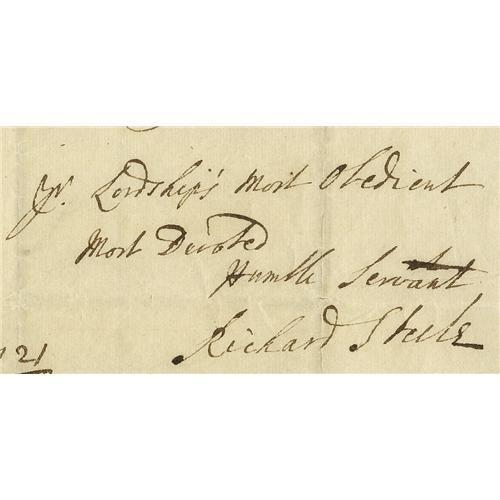 Yr. Lordship's Most Obedient
Most Devoted
Humble Servant
Richard Steele
21